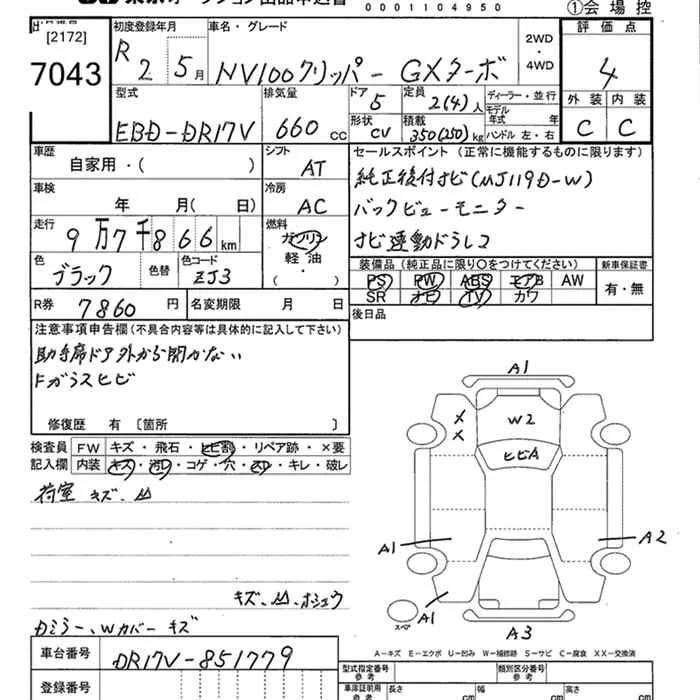 0001104950 ①会場控
[2172] 初度登録年月 車名・グレード 2WD・4WD 評価点
7043 R2 5月 NV100クリッパー GXターボ 4
型式 排気量 ドア 定員 ディーラー・並行 外装 内装
EBD-DR17V 660cc 5 2(4)人 モデル年式 年 C C
形状 積載 ハンドル 左・右
CV 350(250)kg
車歴 シフト セールスポイント(正常に機能するものに限ります)
自家用・( ) AT 純正後付ナビ(MJ119D-W)
車検 冷房 バックビューモニター
年 月( 日) AC ナビ連動ドラレコ
走行 燃料
9万7千866km ガソリン
色 色替 色コード 軽油・
ブラック ZJ3 ( )
装備品(純正品に限り○をつけてください) 新車保証書
PS PW ABS エアB AW 有・無
SR ナビ TV カワ
R券 7860円 名変期限 月 日 後日品
注意事項申告欄(不具合内容等は具体的に記入して下さい)
助手席ドア外から開かない
Fガラスヒビ
修復歴 有 〔箇所 〕
検査員 FW キズ・飛石・ヒビ割・リペア跡・×要
記入欄 内装 キズ・汚レ・コゲ・穴・スレ・キレ・破レ
荷室 キズ、凹
キズ、凹、ホシュウ
Dミラー、Wカバー キズ
A1
X
X
W2
ヒビA
A1 A2
A1
スペア
A3
A-キズ E-エクボ U-凹み W-補修跡 S-サビ C-腐食 XX-交換済
車台番号 DR17V-851779
登録番号
型式指定番号 参考 類別区分番号 参考
車庫証明用 参考 長さ cm 幅 cm 高さ cm